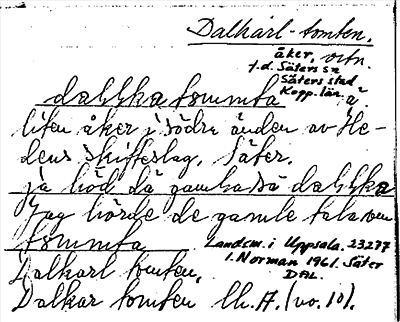 Dalkarl-tomten,
åker, ortn.
f.d. Säters sn
Säters stad
Kopp. län.
dallka tommta
liten åker i södra änden av He-
dens skifteslag, Säter.
ja höd då gambalsä dallka
Jag hörde de gamle tala om
tommta
Landsm. i Uppsala. 23277
I. Norman 1961. Säter
DAL.
Dalkarl tomten,
Dalkar tomten lh. A. (no. 10).